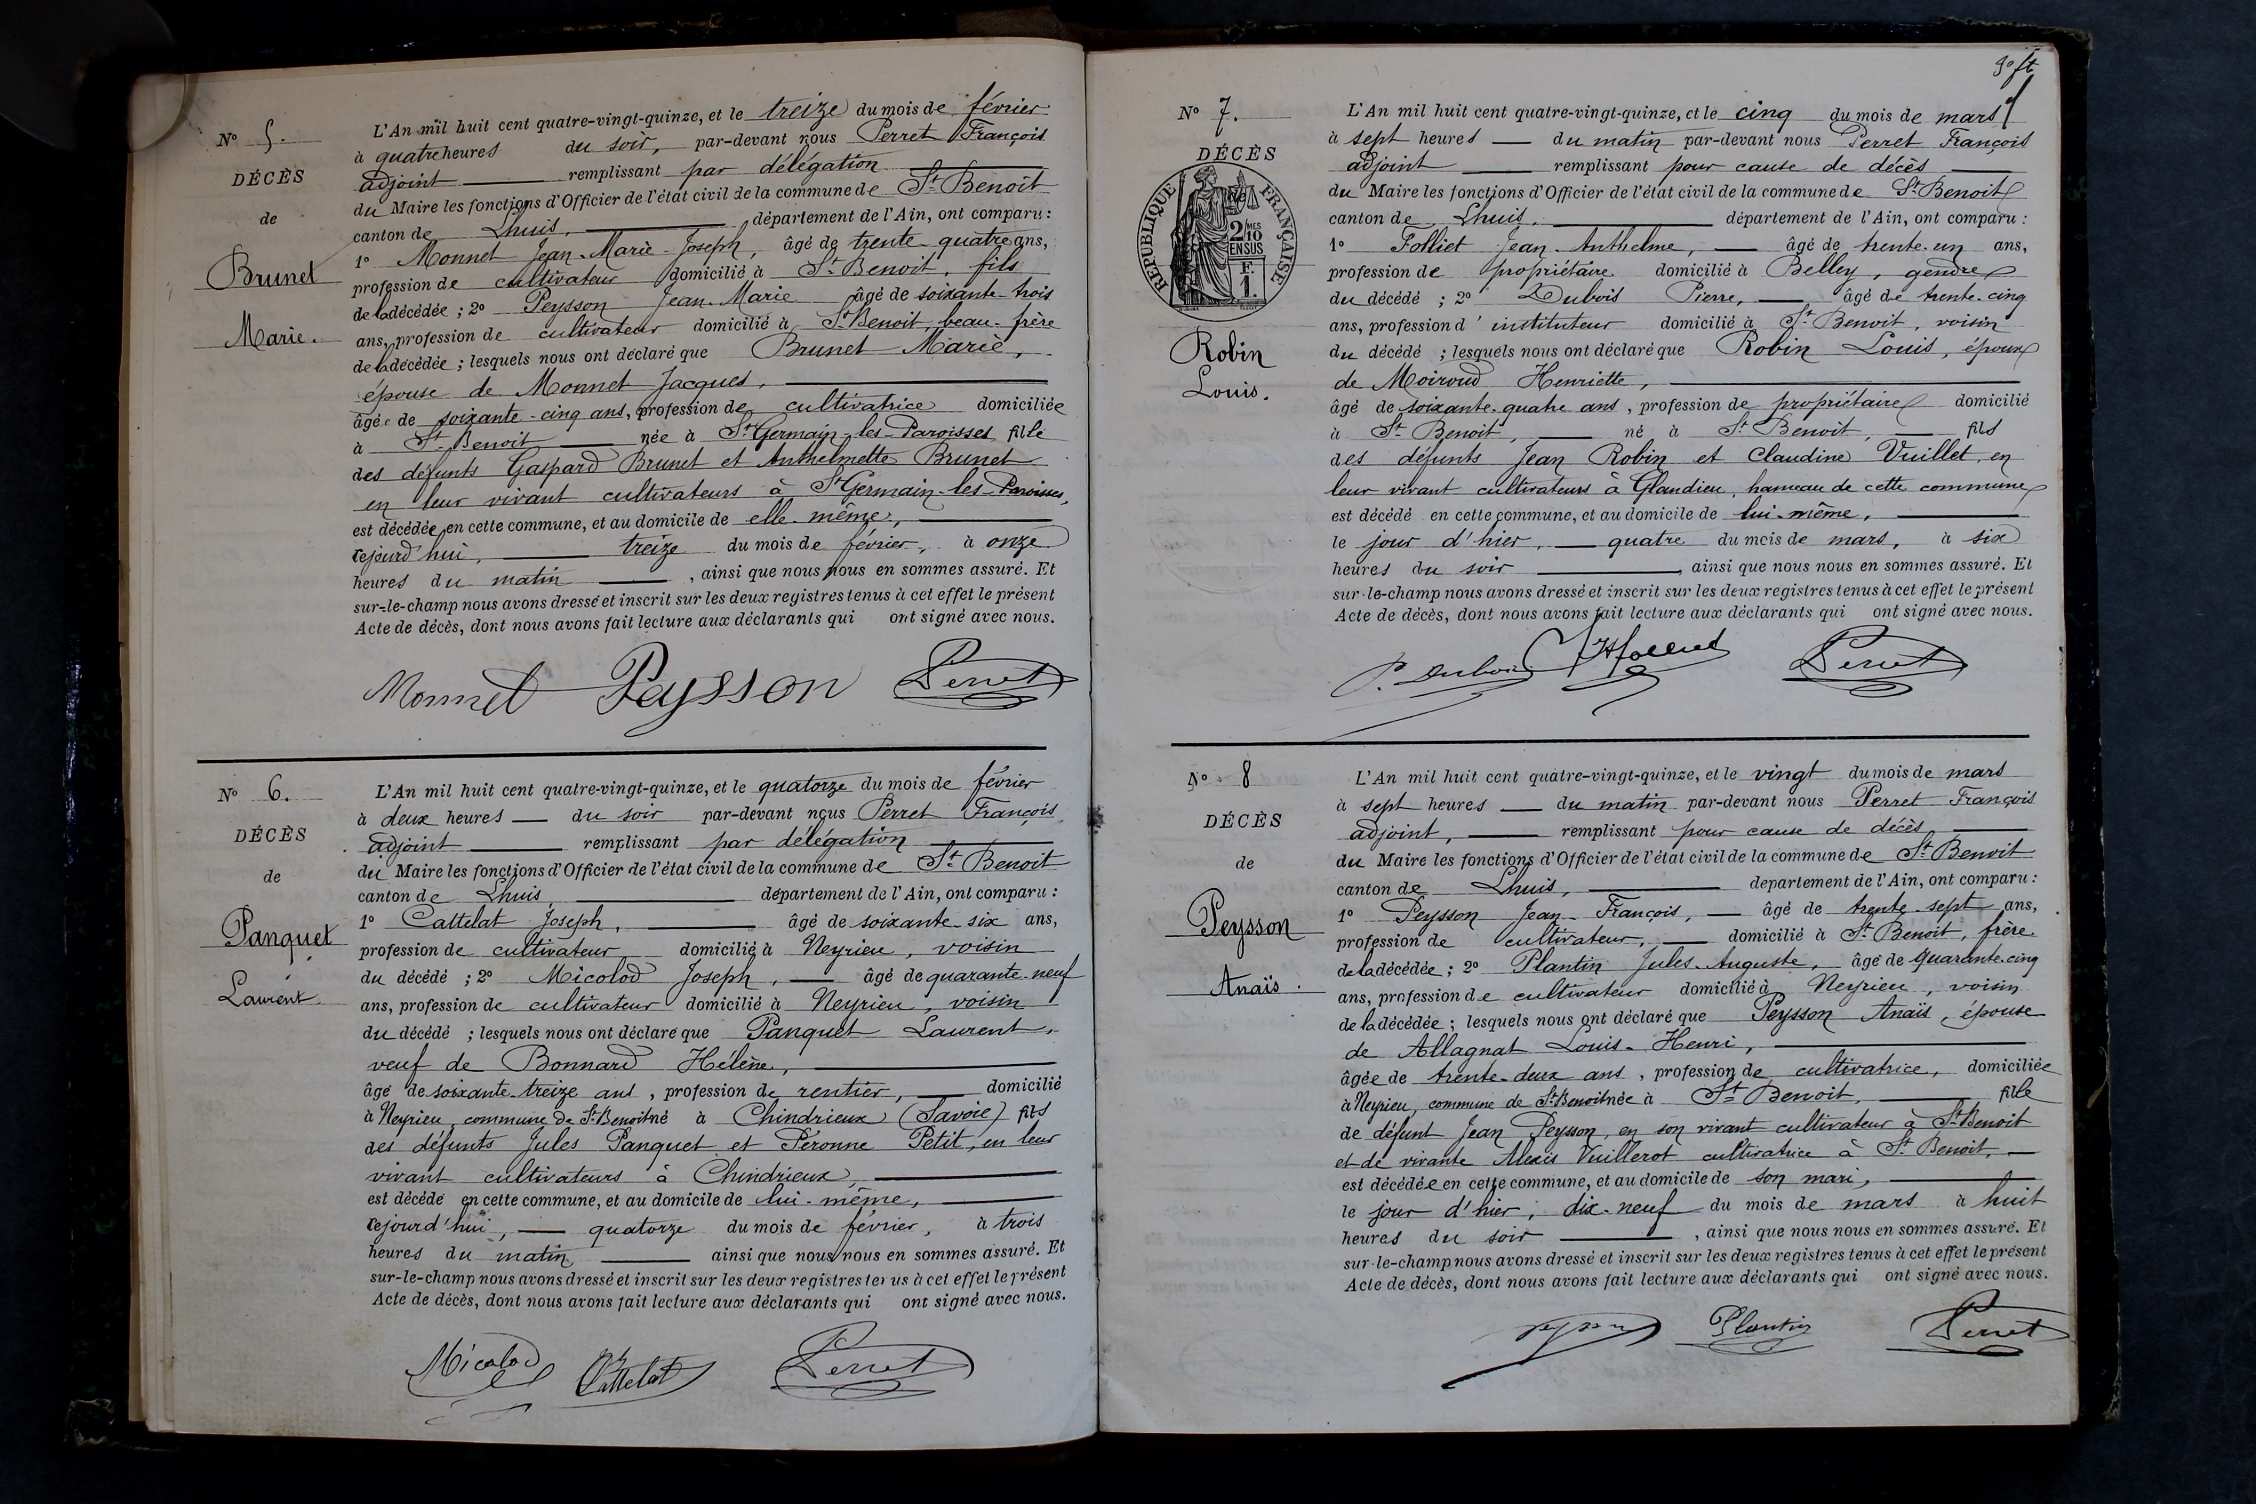 N° 5.
DÉCÈS
de
Brunet
Marie.
L'An mil huit cent quatre-vingt-quinze, et le treize du mois de février
à quatre heures du soir, par-devant nous Perret François
adjoint remplissant par délégation
du Maire les fonctions d'Officier de l'état civil de la commune de St Benoit
canton de Lhuis, département de l'Ain, ont comparu :
1° Monnet Jean-Marie-Joseph, âgé de trente quatre ans,
profession de cultivateur domicilié à St Benoit, fils
de la décédée ; 2° Peysson Jean-Marie âgé de soixante-trois
ans, profession de cultivateur domicilié à St Benoit, beau-frère
de la décédée ; lesquels nous ont déclaré que Brunet Marie,
épouse de Monnet Jacques,
âgée de soixante-cinq ans, profession de cultivatrice domiciliée
à St Benoit née à St Germain-les-Paroisses fille
des défunts Gaspard Brunet et Anthelmette Brunet
en leur vivant cultivateurs à St Germain-les-Paroisses,
est décédée en cette commune, et au domicile de elle-même,
cejourd'hui, treize du mois de février, à onze
heures du matin , ainsi que nous nous en sommes assuré. Et
sur-le-champ nous avons dressé et inscrit sur les deux registres tenus à cet effet le présent
Acte de décès, dont nous avons fait lecture aux déclarants qui ont signé avec nous.
Monnet Peysson Perret
N° 6.
DÉCÈS
de
Panquet
Laurent
L'An mil huit cent quatre-vingt-quinze, et le quatorze du mois de février
à deux heures du soir par-devant nous Perret François,
adjoint remplissant par délégation
du Maire les fonctions d'Officier de l'état civil de la commune de St Benoit
canton de Lhuis département de l'Ain, ont comparu :
1° Cattelat Joseph, âgé de soixante-six ans,
profession de cultivateur domicilié à Neyrieu, voisin
du décédé ; 2° Micolod Joseph, âgé de quarante-neuf
ans, profession de cultivateur domicilié à Neyrieu, voisin
du décédé ; lesquels nous ont déclaré que Panquet Laurent,
veuf de Bonnard Hélène,
âgé de soixante-treize ans, profession de rentier, domicilié
à Neyrieu, commune de St Benoit né à Chindrieux (Savoie) fils
des défunts Jules Panquet et Péronne Petit, en leur
vivant cultivateurs à Chindrieux,
est décédé en cette commune, et au domicile de lui-même,
cejourd'hui, quatorze du mois de février, à trois
heures du matin ainsi que nous nous en sommes assuré. Et
sur-le-champ nous avons dressé et inscrit sur les deux registres tenus à cet effet le présent
Acte de décès, dont nous avons fait lecture aux déclarants qui ont signé avec nous.
Micolod Cattelat Perret
N° 7.
DÉCÈS
RÉPUBLIQUE FRANÇAISE
2/10 MES
EN SUS
F.
1.
Robin
Louis.
L'An mil huit cent quatre-vingt-quinze, et le cinq du mois de mars
à sept heures du matin par-devant nous Perret François
adjoint remplissant pour cause de décès
du Maire les fonctions d'Officier de l'état civil de la commune de St Benoit
canton de Lhuis, département de l'Ain, ont comparu :
1° Folliet Jean-Anthelme, âgé de trente-un ans,
profession de propriétaire domicilié à Belley, gendre
du décédé ; 2° Dubois Pierre, âgé de trente-cinq
ans, profession d'instituteur domicilié à St Benoit, voisin
du décédé ; lesquels nous ont déclaré que Robin Louis, époux
de Moiroud Henriette,
âgé de soixante-quatre ans, profession de propriétaire domicilié
à St Benoit, né à St Benoit, fils
des défunts Jean Robin et Claudine Vuillet, en
leur vivant cultivateurs à Glandieu, hameau de cette commune
est décédé en cette commune, et au domicile de lui-même,
le jour d'hier, quatre du mois de mars, à six
heures du soir , ainsi que nous nous en sommes assuré. Et
sur-le-champ nous avons dressé et inscrit sur les deux registres tenus à cet effet le présent
Acte de décès, dont nous avons fait lecture aux déclarants qui ont signé avec nous.
P. Dubois Folliet Perret
N° 8
DÉCÈS
de
Peysson
Anaïs.
L'An mil huit cent quatre-vingt-quinze, et le vingt du mois de mars
à sept heures du matin par-devant nous Perret François
adjoint, remplissant pour cause de décès
du Maire les fonctions d'Officier de l'état civil de la commune de St Benoit
canton de Lhuis, département de l'Ain, ont comparu :
1° Peysson Jean-François, âgé de trente-sept ans,
profession de cultivateur, domicilié à St Benoit, frère
de la décédée ; 2° Plantin Jules-Auguste, âgé de quarante-cinq
ans, profession de cultivateur domicilié à Neyrieu, voisin
de la décédée ; lesquels nous ont déclaré que Peysson Anaïs, épouse
de Allagnat Louis-Henri,
âgée de trente-deux ans, profession de cultivatrice, domiciliée
à Neyrieu, commune de St Benoit née à St Benoit, fille
de défunt Jean Peysson, en son vivant cultivateur à St Benoit
et de vivante Alexis Vuillerot cultivatrice à St Benoit,
est décédée en cette commune, et au domicile de son mari,
le jour d'hier, dix-neuf du mois de mars à huit
heures du soir , ainsi que nous nous en sommes assuré. Et
sur-le-champ nous avons dressé et inscrit sur les deux registres tenus à cet effet le présent
Acte de décès, dont nous avons fait lecture aux déclarants qui ont signé avec nous.
Plantin Perret